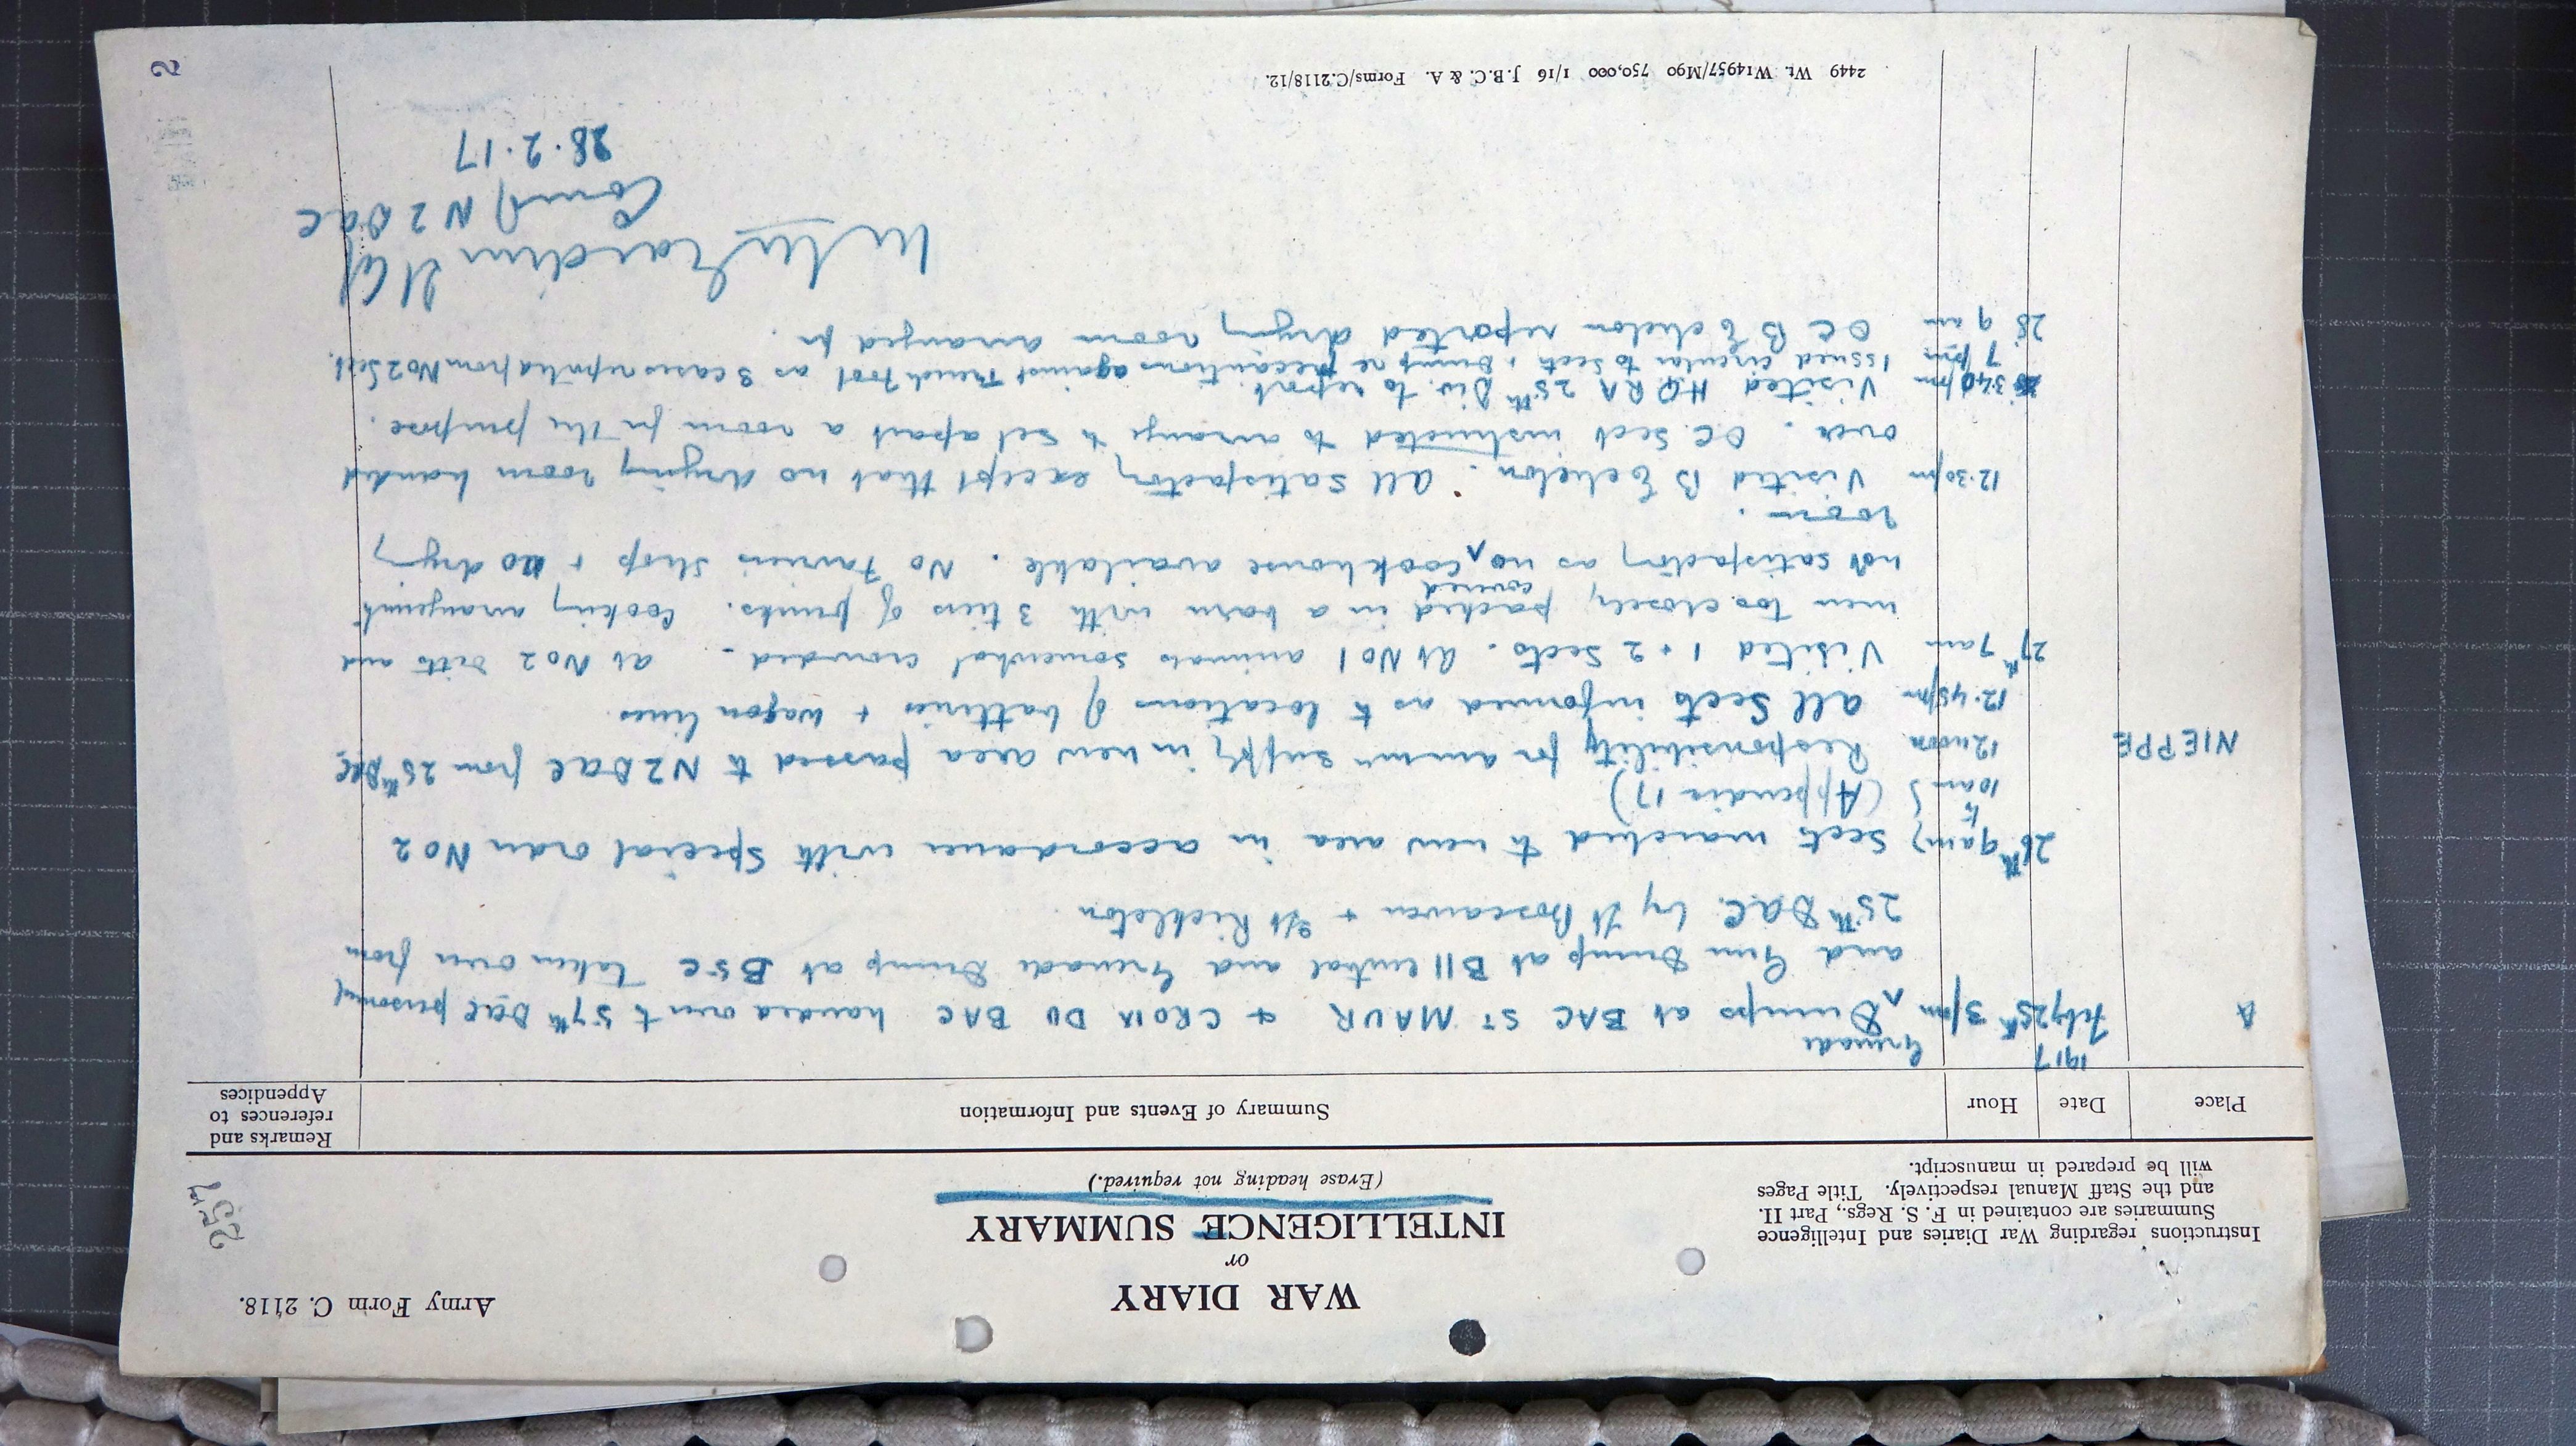 Army Form C. 2118.
WAR DIARY
or
INTELLIGENCE SUMMARY
(Erase heading not required.)
Instructions regarding War Diaries and Intelligence
Summaries are contained in F. S. Regs., Part II.
and the Staff Manual respectively. Title Pages
will be prepared in manuscript.
Place Date Hour Summary of Events and Information Remarks and references to Appendices
1917 Grenade
A Feby 25th 3pm Dumps at BAC ST MAUR & CROIX DU BAC handed over to 57th DAC personnel
and Gun Dump at B11 central and Grenade Dump at B5c taken over from
25th DAC by Lt Boscawen + 2/Lt Rickleton
26th 9am Sects marched to new area in accordance with Special order No 2
to 10am (Appendix 17)
NIEPPE 12 noon Responsibility for ammn supply in new area passed to NZDAC from 25th DAC
12.45pm All Sects informed as to locations of batteries + wagon lines
27th 7am Visited 1 + 2 Sects. At No 1 animals somewhat crowded - at No 2 ditto and
men too closely packed in a barn with 3 tiers of bunks. Cooking arrangements
covered
not satisfactory as no cookhouse available. No Farriers shop + no drying
room.
12.30pm Visited B Echelon. All satisfactory except that no drying room handed
over. OC Sect instructed to arrange to set apart a room for the purpose.
3.40pm Visited HQRA 25th Div. to report.
7pm Issued circular to Sects + Dump re precautions against Trench Foot as 3 cases reported from No 2 Sect.
28 9am OC B Echelon reported drying room arranged for.
Lt Col
Comdg NZDAC
28.2.17
2449 Wt. W14957/M90 750,000 1/16 J.B.C. & A. Forms/C.2118/12.
2